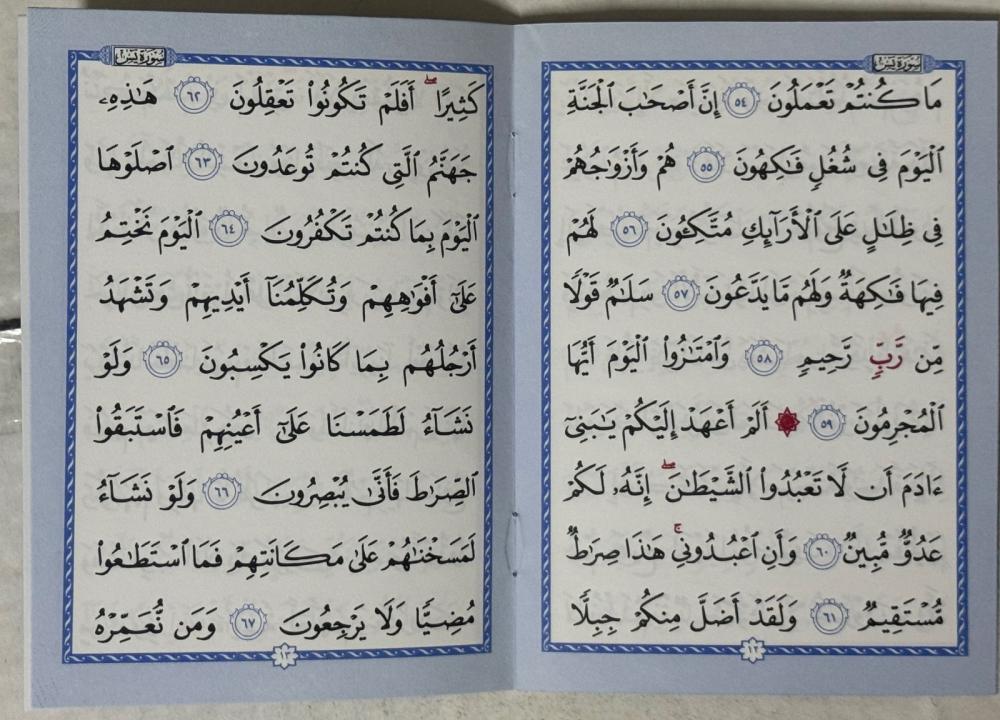 سورة يس
مَا كُنتُمْ تَعْمَلُونَ ٥٤ إِنَّ أَصْحَٰبَ ٱلْجَنَّةِ
ٱلْيَوْمَ فِى شُغُلٍ فَٰكِهُونَ ٥٥ هُمْ وَأَزْوَٰجُهُمْ
فِى ظِلَٰلٍ عَلَى ٱلْأَرَآئِكِ مُتَّكِـُٔونَ ٥٦ لَهُمْ
فِيهَا فَٰكِهَةٌ وَلَهُم مَّا يَدَّعُونَ ٥٧ سَلَٰمٌ قَوْلًا
مِّن رَّبٍّ رَّحِيمٍ ٥٨ وَٱمْتَٰزُوا۟ ٱلْيَوْمَ أَيُّهَا
ٱلْمُجْرِمُونَ ٥٩ ۞ أَلَمْ أَعْهَدْ إِلَيْكُمْ يَٰبَنِىٓ
ءَادَمَ أَن لَّا تَعْبُدُوا۟ ٱلشَّيْطَٰنَ ۖ إِنَّهُۥ لَكُمْ
عَدُوٌّ مُّبِينٌ ٦٠ وَأَنِ ٱعْبُدُونِى ۚ هَٰذَا صِرَٰطٌ
مُّسْتَقِيمٌ ٦١ وَلَقَدْ أَضَلَّ مِنكُمْ جِبِلًّا
١٢
سورة يس
كَثِيرًا ۖ أَفَلَمْ تَكُونُوا۟ تَعْقِلُونَ ٦٢ هَٰذِهِۦ
جَهَنَّمُ ٱلَّتِى كُنتُمْ تُوعَدُونَ ٦٣ ٱصْلَوْهَا
ٱلْيَوْمَ بِمَا كُنتُمْ تَكْفُرُونَ ٦٤ ٱلْيَوْمَ نَخْتِمُ
عَلَىٰٓ أَفْوَٰهِهِمْ وَتُكَلِّمُنَآ أَيْدِيهِمْ وَتَشْهَدُ
أَرْجُلُهُم بِمَا كَانُوا۟ يَكْسِبُونَ ٦٥ وَلَوْ
نَشَآءُ لَطَمَسْنَا عَلَىٰٓ أَعْيُنِهِمْ فَٱسْتَبَقُوا۟
ٱلصِّرَٰطَ فَأَنَّىٰ يُبْصِرُونَ ٦٦ وَلَوْ نَشَآءُ
لَمَسَخْنَٰهُمْ عَلَىٰ مَكَانَتِهِمْ فَمَا ٱسْتَطَٰعُوا۟
مُضِيًّا وَلَا يَرْجِعُونَ ٦٧ وَمَن نُّعَمِّرْهُ
١٣